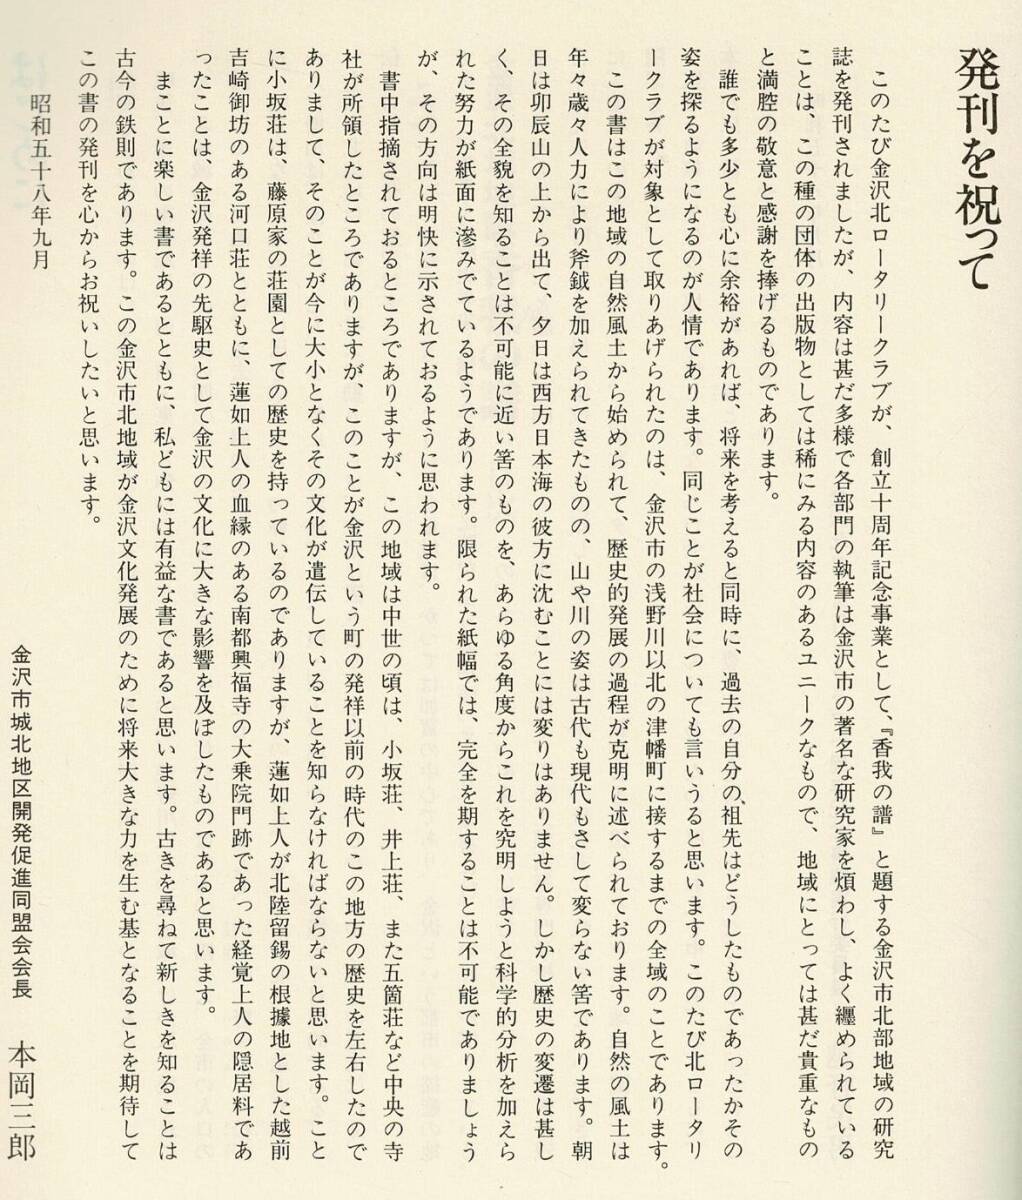 発刊を祝って
このたび金沢北ロータリークラブが、創立十周年記念事業として、『香我の譜』と題する金沢市北部地域の研究
誌を発刊されましたが、内容は甚だ多様で各部門の執筆は金沢市の著名な研究家を煩わし、よく纒められている
ことは、この種の団体の出版物としては稀にみる内容のあるユニークなもので、地域にとっては甚だ貴重なもの
と満腔の敬意と感謝を捧げるものであります。
誰でも多少とも心に余裕があれば、将来を考えると同時に、過去の自分の、祖先はどうしたものであったかその
姿を探るようになるのが人情であります。同じことが社会についても言いうると思います。このたび北ロータリ
ークラブが対象として取りあげられたのは、金沢市の浅野川以北の津幡町に接するまでの全域のことであります。
この書はこの地域の自然風土から始められて、歴史的発展の過程が克明に述べられております。自然の風土は
年々歳々人力により斧鉞を加えられてきたものの、山や川の姿は古代も現代もさして変らない筈であります。朝
日は卯辰山の上から出て、夕日は西方日本海の彼方に沈むことには変りはありません。しかし歴史の変遷は甚し
く、その全貌を知ることは不可能に近い筈のものを、あらゆる角度からこれを究明しようと科学的分析を加えら
れた努力が紙面に滲みでているようであります。限られた紙幅では、完全を期することは不可能でありましょう
が、その方向は明快に示されておるように思われます。
書中指摘されておるところでありますが、この地域は中世の頃は、小坂荘、井上荘、また五箇荘など中央の寺
社が所領したところでありますが、このことが金沢という町の発祥以前の時代のこの地方の歴史を左右したので
ありまして、そのことが今に大小となくその文化が遺伝していることを知らなければならないと思います。こと
に小坂荘は、藤原家の荘園としての歴史を持っているのでありますが、蓮如上人が北陸留錫の根據地とした越前
吉崎御坊のある河口荘とともに、蓮如上人の血縁のある南都興福寺の大乗院門跡であった経覚上人の隠居料であ
ったことは、金沢発祥の先駆史として金沢の文化に大きな影響を及ぼしたものであると思います。
まことに楽しい書であるとともに、私どもには有益な書であると思います。古きを尋ねて新しきを知ることは
古今の鉄則であります。この金沢市北地域が金沢文化発展のために将来大きな力を生む基となることを期待して
この書の発刊を心からお祝いしたいと思います。
昭和五十八年九月
金沢市城北地区開発促進同盟会会長　本岡三郎